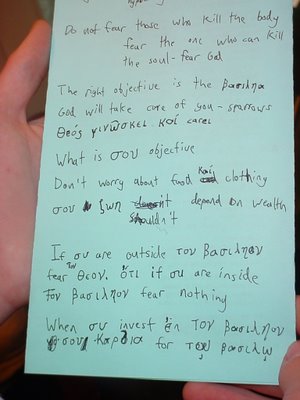 Do not fear those who kill the body
fear the one who can kill
the soul - fear God
The right objective is the βασιληα
God will take care of you - sparrows
Θεός γινῶσκει καί cares
What is σου objective
Don't worry about food καί clothing
σου ζωη shouldn't depend on wealth
If συ are outside τον βασιληον
fear τον θεον. ὅτι if συ are inside
τον βασιληον fear nothing
When συ invest ἐν τον βασιληον
σου καρδια for τον